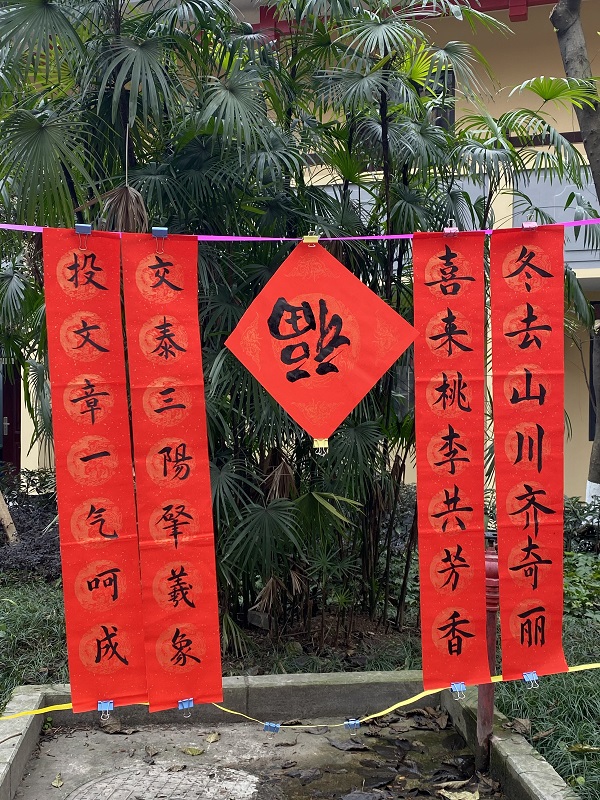 冬去山川齐奇丽
喜来桃李共芳香
福
交泰三阳肇羲象
投文章一气呵成